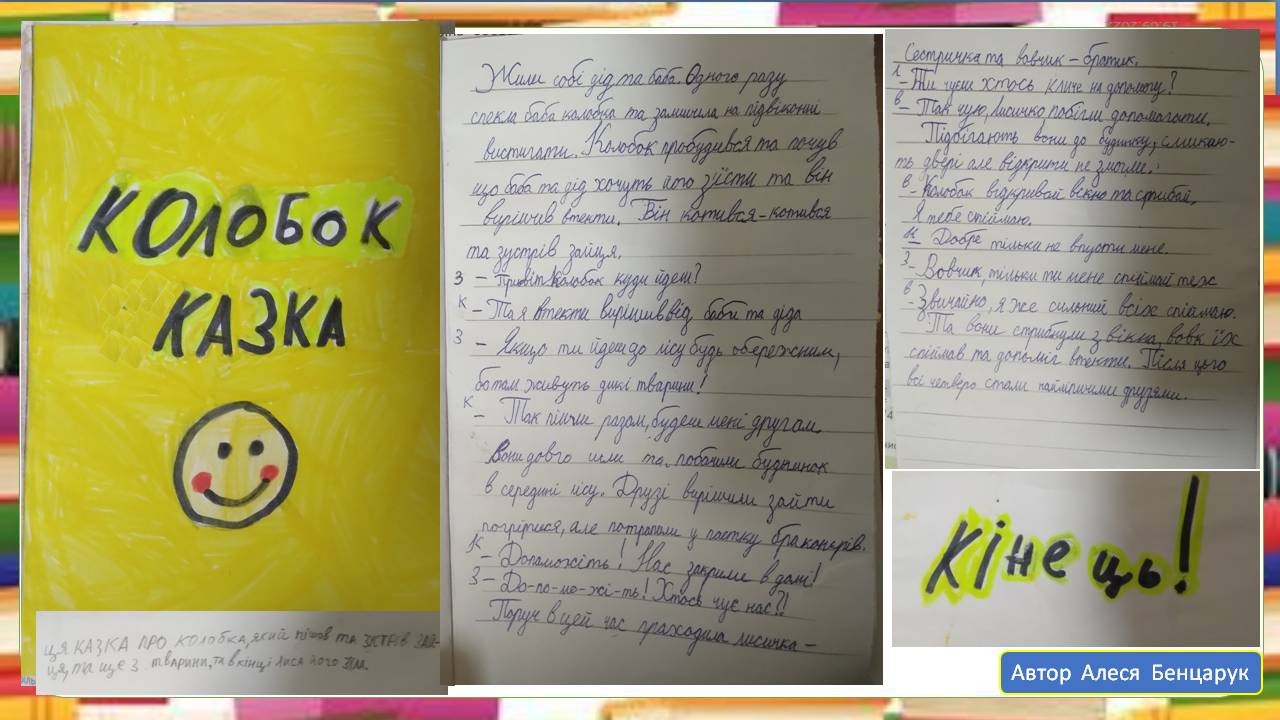 КОЛОБОК
КАЗКА
ЦЯ КАЗКА ПРО КОЛОБКА, ЯКИЙ пішов та ЗУСТРІВ ЗАЙ-
ЦЯ, та ще 3 тварини, та в кінці лиса його зїла.
Жили собі дід та баба. Одного разу
спекла баба колобка та залишила на підвіконні
вистигати. Колобок пробудився та почув
що баба та дід хочуть його зʼїсти та він
вирішив втекти. Він котився-котився
та зустрів зайця.
З - Привіт Колобок куди йдеш?
К - Та я втекти вирішив від баби та діда
З - Якщо ти йдеш до лісу будь обережним,
бо там живуть дикі тварини!
К - Так пішли разом, будеш мені другом.
Вони довго йшли та побачили будинок
в середині лісу. Друзі вирішили зайти
погрітися, але потрапили у пастку браконєрів.
К - Допоможіть! Нас закрили в домі!
З - До-по-мо-жі-ть! Хтось чує нас?!
Поруч в цей час проходила лисичка -
Сестричка та вовчик - братик.
Л - Ти чуєш хтось кличе на допомогу?
В - Так чую, Лисичко, побігли допомагати.
Підбігають вони до будинку, смикаю-
ть двері але відкрити не змогли.
В - Колобок відкривай вікно та стрибай,
Я тебе спіймаю.
К - Добре тільки не впусти мене.
З - Вовчик, тільки ти мене спіймай теж
В - Звичайно, я же сильний всіх спіймаю.
Та вони стрибнули з вікна, вовк їх
спіймав та допоміг втекти. Після цього
всі четверо стали найліпшими друзями.
Кінець!
Автор Алеся Бенцарук